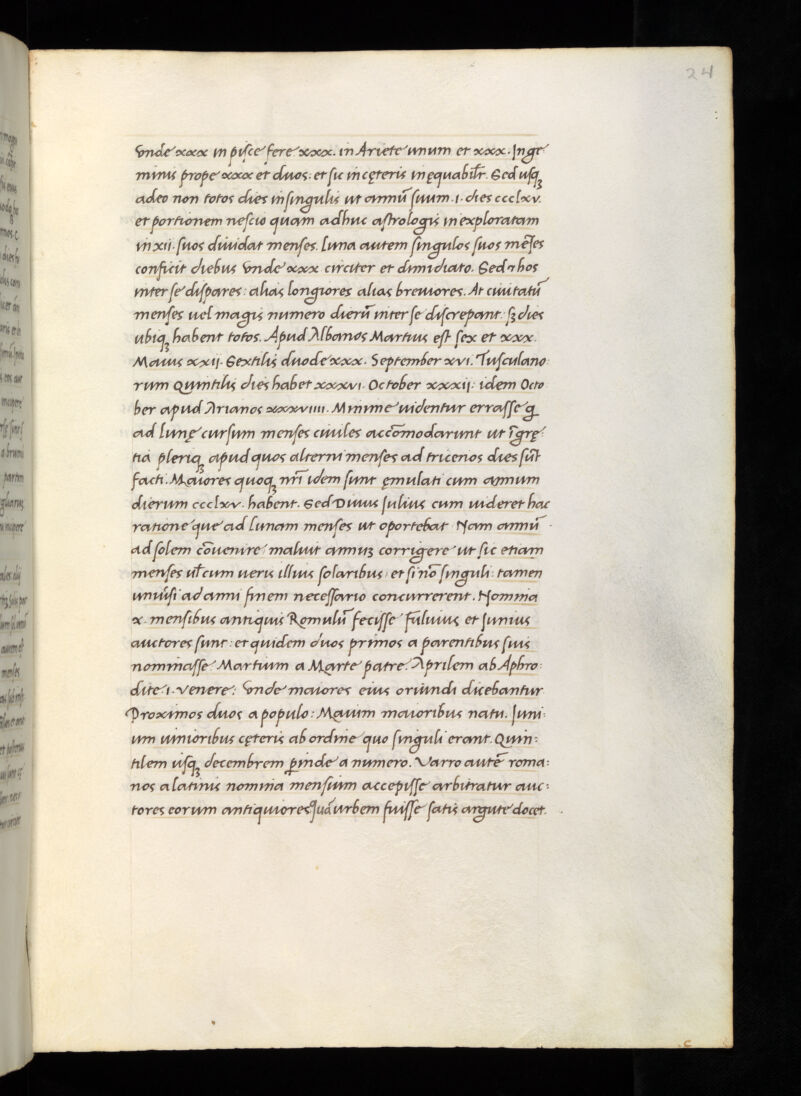 24
Vnde xxx in pisce fere xxx. in Ariete unum et xxx. In ge
minis prope xxx et duos: et sic in cęteris inęquabilr̃. Sed usqꝫ
adeo non totos dies in singulis ut annũ suum .i. dies ccclxv.
et portionem nescio quam adhuc astrologis inexploratam
in xii. suos diuidat menses. Luna autem singulos suos mẽses
conficit diebus Vnde xxx circiter et dimidiato. Sed et hos
inter se dispares: alias longiores alias breuiores. At ciuitatũ
menses uel magis numero dierũ inter se discrepant: sꝫ dies
ubiqꝫ habent totos. Apud Albanos Martius est sex et xxx.
Maius xxij. Sextilis duode xxx. September xvi. Tusculano
rum Quintilis dies habet xxxvi. October xxxij: idem Octo
ber apud Arianos xxxviiii. Minime uidentur errasse q̃
ad lunę cursum menses ciuiles accõmodarunt ut ĩ gręꞏ
tia pleriqꝫ apud quos alterni menses ad tricenos dies sũt
facti. Maiores quoqꝫ nr̃i idem sunt ęmulati cum annum
dierum ccclv. habent. Sed Diuus Iulius cum uideret hac
ratione que ad lunam menses ut oportebat Nam annũ
ad solem cõuenire: maluit annuꝫ corrigere ut sic etiam
menses ul̃ cum ueris illius solaribus: et si nõ singuli: tamen
uniũsi ad anni finem necessario concurrerent. Nomina
x. mensibus antiquis Romulũ fecisse fuluius et Iunius
auctores sunt: et quidem duos primos a parentibus suis
nominasse Martium a Marte patre. Aprilem ab Aphro:
dite .i. venere: Vnde maiores eius oriundi dicebantur
Proximos duos a populo: Maium maioribus natu. Iuni:
um iunioribus cęteris ab ordine quo singuli erant. Quin:
tilem usqꝫ decembrem ꝑinde a numero. Varro autẽ roma:
nos a latinis nomina mensium accepisse arbitratur auc:
tores eorum antiquiores quã urbem fuisse satis argute docet.